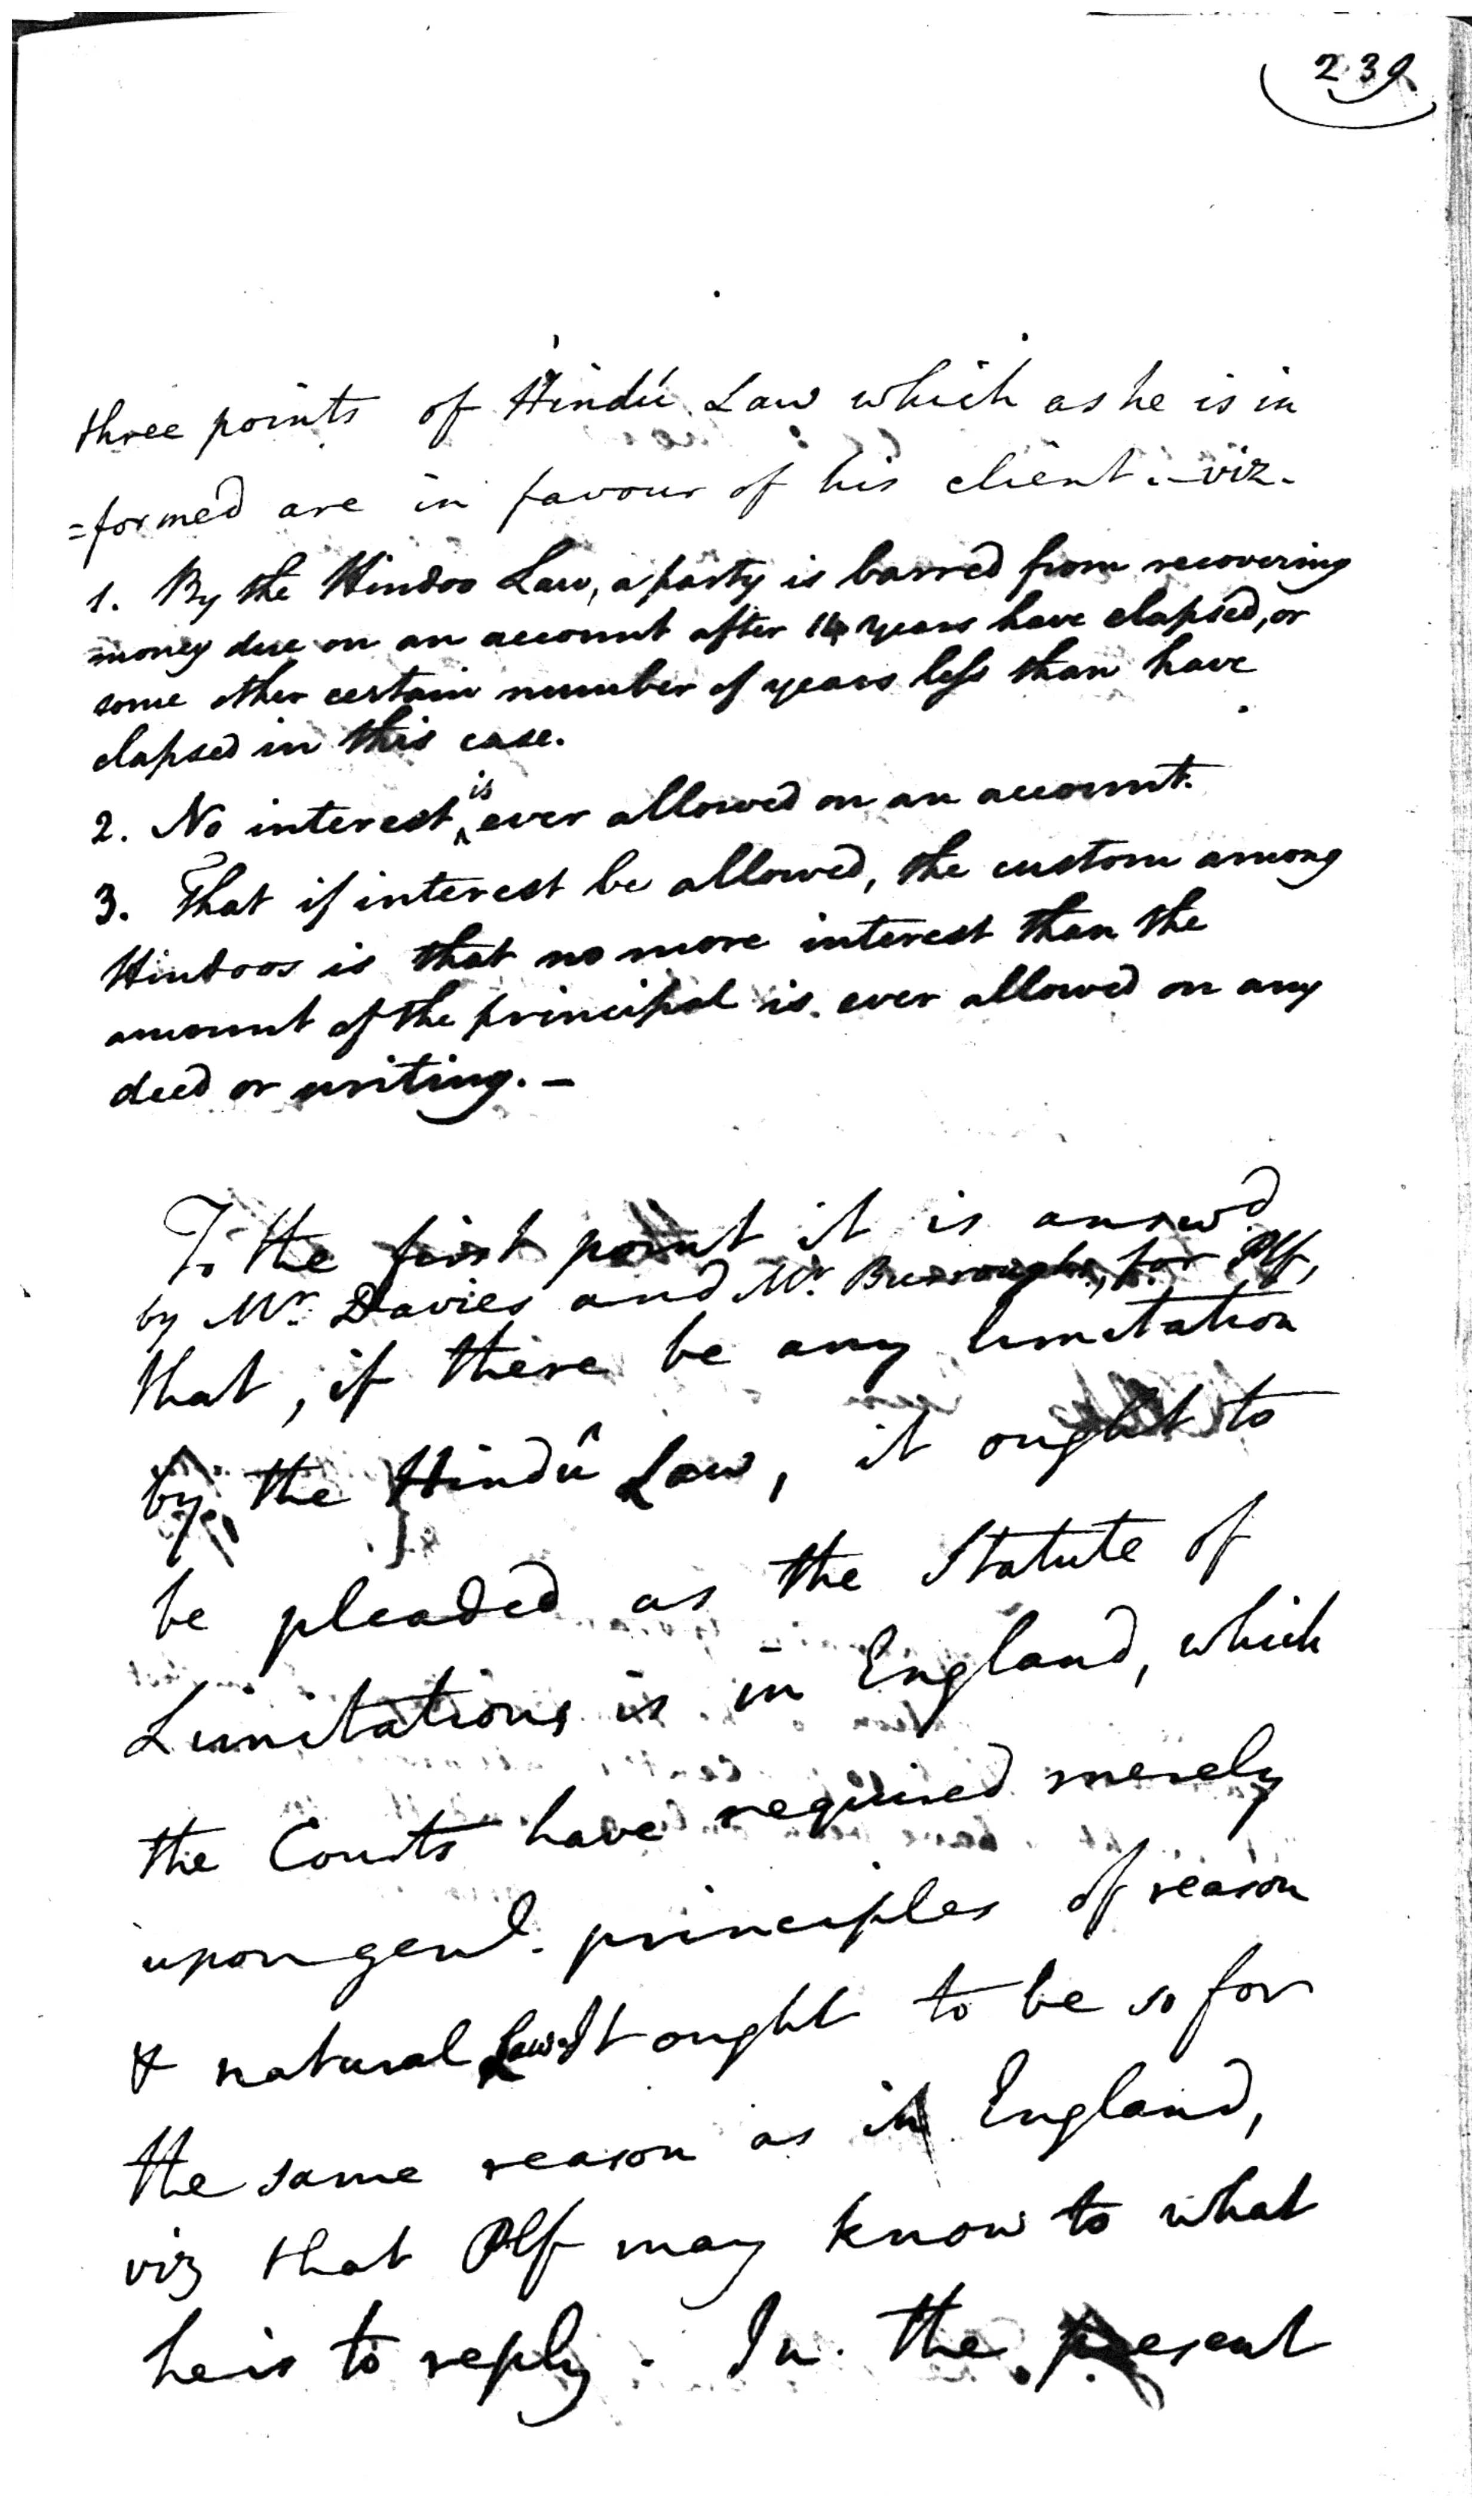 239.
three points of Hindú Law which as he is in
=formed are in favour of his client. - viz.
1. By the Hindoo Law, a party is barred from recovering
money due on an account after 14 years have elapsed, or
some other certain number of years less than have
elapsed in this case.
2. No interest is ever allowed on an account.
3. That if interest be allowed, the custom among
Hindoos is that no more interest than the
amount of the principal is ever allowed on any
deed or writing. -
To the first point it is answd
by Mr. Davies and Mr. Burroughs, for Plf,
that, if there be any limitation
by the Hindû Law, it ought to
be pleaded as the Statute of
Limitations is in England, which
the Courts have required merely
upon genl. principles of reason
& natural Law. It ought to be so for
the same reason as in England,
viz that Plf may know to what
he is to reply. In the present